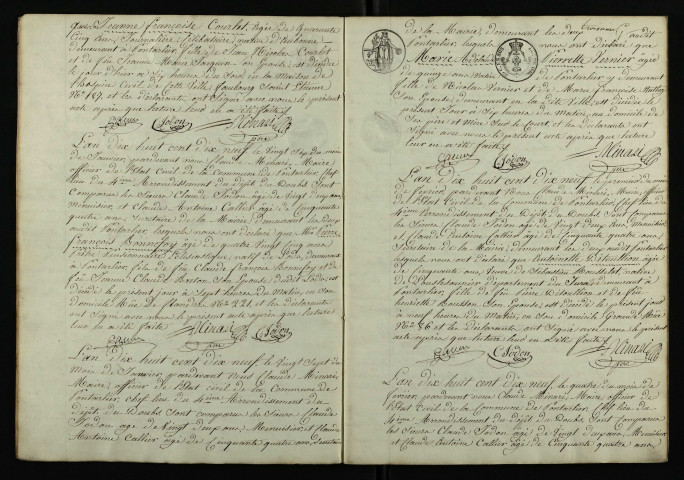 que Jeanne Françoise Courlet, âgée de quarante
Cinq ans, Journalière, Célibataire, native d'
demeurant à Pontarlier, fille de Jean Nicolas Courlet
et de feu Jeanne Marie son Epouse, est décédée
le jour d'hier à Six heures du Soir en la Maison de
l'hospice Civil de cette Ville, faubourg Saint Etienne
N° 167, et les déclarants ont Signé avec nous le présent
acte après que lecture leur en a été faite
Sodon Minary
L'an dix huit cent dix neuf le vingt Sept du mois
de Janvier, pardevant nous Claude Minary, Maire
officier de l'Etat Civil de la Commune de Pontarlier, chef
lieu du 4ème Arrondissement du Dépt du Doubs, Sont
Comparus les Sieurs Claude Sodon âgé de Vingt deux ans
Menuisier, et Claude Antoine Callier âgé de Cinquante
quatre ans, Secrétaire de la Mairie, demeurant les deux
audit Pontarlier, lesquels nous ont déclaré que Mre Pierre
François Bonnefoy âgé de quatre Vingt Cinq ans
Prêtre Pensionnaire Ecclésiastique, natif de
à Pontarlier, fils de feu Claude François Bonnefoy et de
feu Jeanne Claude Barthon Son Epouse dudit lieu, est
décédé le présent jour à Sept heures du Matin, en Son
domicile Rue de N° 221, et les déclarants
ont Signé avec nous le présent acte après que lecture
leur en a été faite
Minary Sodon
L'an dix huit cent dix neuf, le Vingt Sept du
mois de Janvier, pardevant nous Claude Minary,
Maire, officier de l'Etat civil de la Commune de
Pontarlier, chef lieu du 4ème Arrondissement du
dépt. du Doubs sont comparus les Sieurs Claude
Sodon âgé de Vingt deux ans, Menuisier, et Claude
Antoine Callier âgé de Cinquante quatre ans, Secrétaire
de la Mairie, demeurant les deux audit
Pontarlier, lesquels nous ont déclaré que
Marie Pierrette Vernier âgée
de quinze ans, native de Pontarlier y demeurant
fille de Nicolas Vernier et de Marie Françoise
Son Epouse, demeurant en cette Ville, est décédée le
présent jour à Six heures du Matin, au domicile de
Ses père et mère et les déclarants ont
Signé avec nous le présent acte après que lecture
leur en a été faite
Sodon Minary
L'an dix huit cent dix neuf, le premier du mois
de février, pardevant nous Claude Minary, Maire, officier
de l'Etat Civil de la Commune de Pontarlier, chef lieu du
4ème Arrondissement du Dépt du Doubs, Sont Comparus
les Sieurs Claude Sodon âgé de Vingt deux ans, Menuisier
et Claude Antoine Callier âgé de Cinquante quatre ans,
Secrétaire de la Mairie, demeurant les deux audit Pontarlier,
lesquels nous ont déclaré que Antoinette Rétrillon âgée
de Cinquante ans, Veuve de Sébastien Mousselet, native
de département du Jura, demeurant à
Pontarlier, fille de feu Pierre Rétrillon et de feu
henriette Son Epouse, est décédée le présent jour
à neuf heures du Matin, en Son domicile Grande Rue
N° 26 et les déclarants ont Signé avec nous le présent
acte après que lecture leur en a été faite
Sodon Minary
L'an dix huit cent dix neuf, le quatre du mois de
février, pardevant nous Claude Minary, Maire officier de
l'Etat Civil de la Commune de Pontarlier, chef lieu du
4ème Arrondissement du Dépt du Doubs, Sont Comparus
les Sieurs Claude Sodon âgé de Vingt deux ans, Menuisier
et Claude Antoine Callier âgé de Cinquante quatre ans,